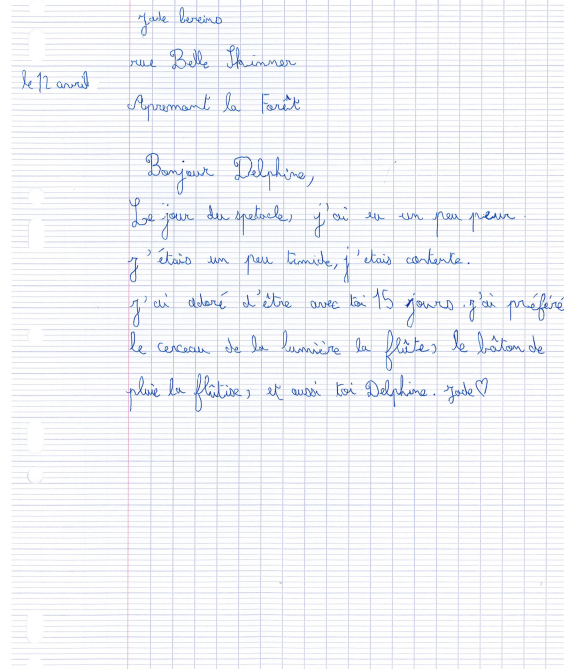 jade bereins
rue Belle Skinner
le 12 avril
Apremont la Forêt
Bonjour Delphine,
Le jour du spetacle, j'ai eu un peu peur.
j'étais un peu timide, j'etais contente.
j'ai adoré d'être avec toi 15 jours. j'ai préféré
le cerceau de la lumière la flûte, le bâton de
pluie la flûtise, et aussi toi Delphine. Jade♡